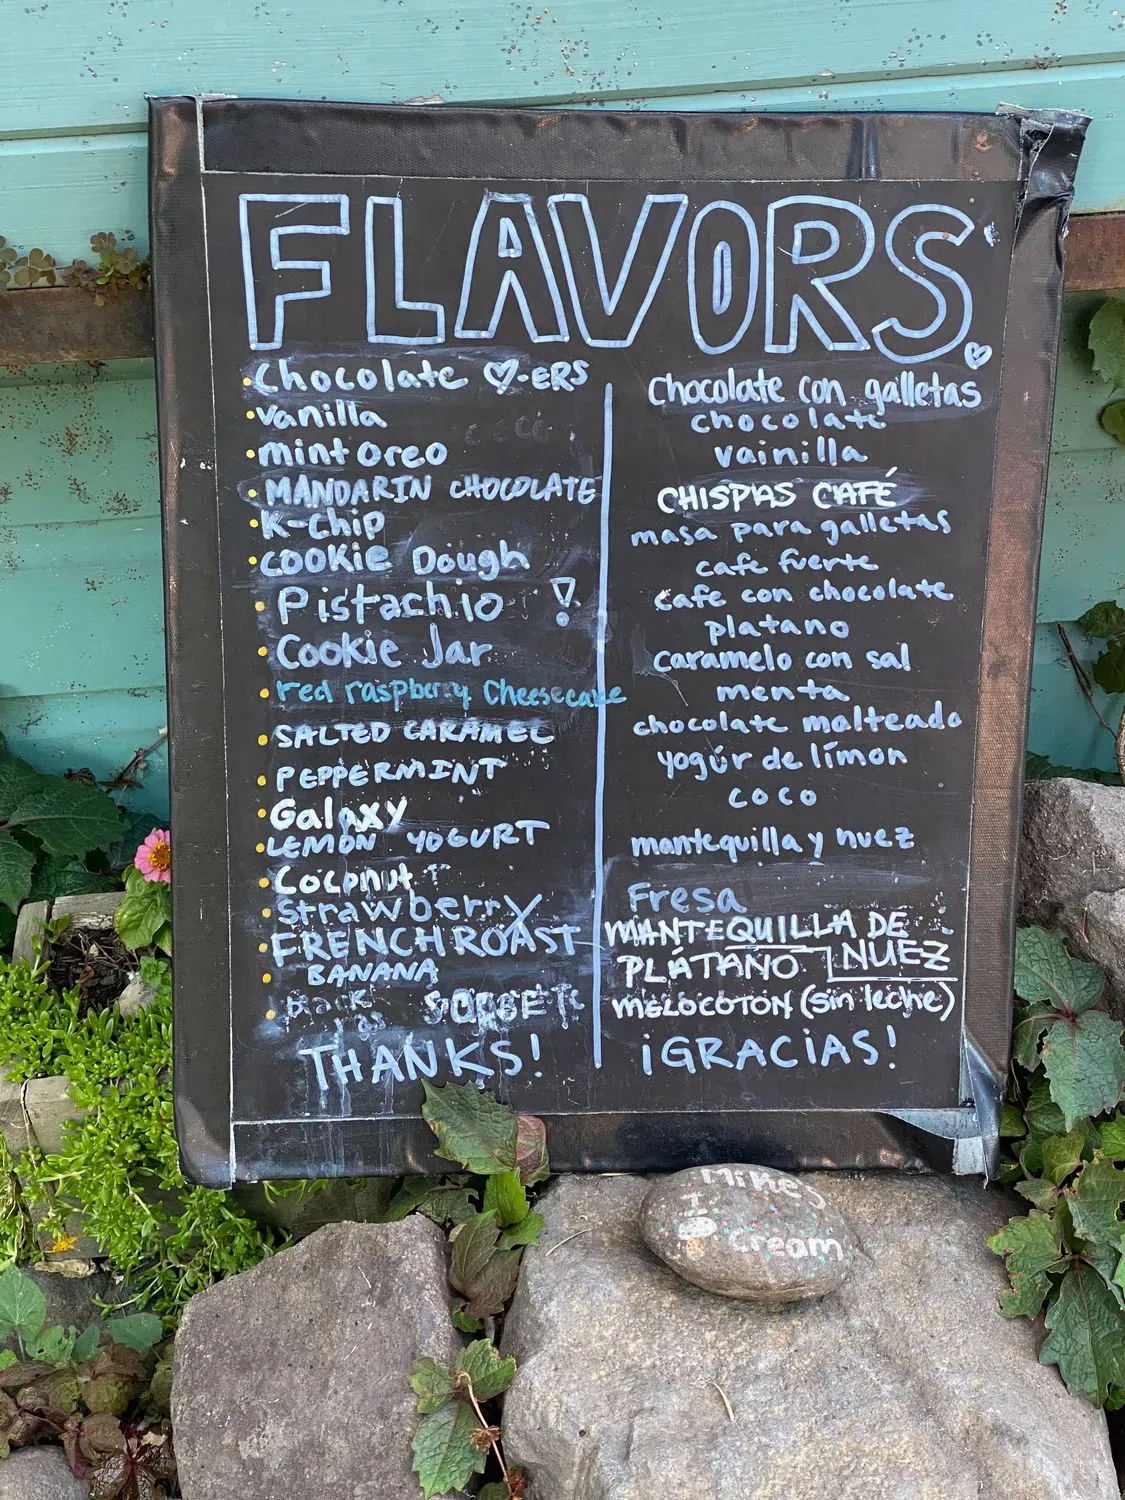 FLAVORS
Chocolate ♡-ERS
vanilla
mint oreo
MANDARIN CHOCOLATE
K-Chip
COOKIE Dough
Pistachio
Cookie Jar
red raspberry Cheesecake
SALTED CARAMEL
PEPPERMINT
Galaxy
LEMON YOGURT
Coconut
Strawberry
FRENCH ROAST
BANANA
THANKS!
Chocolate con galletas
chocolate
vainilla
CHISPAS CAFÉ
masa para galletas
cafe fuerte
cafe con chocolate
platano
caramelo con sal
menta
chocolate malteado
yogúr de límon
coco
mantequilla y nuez
Fresa
MANTEQUILLA DE
PLÁTANO NUEZ
MELOCOTON (sin leche)
¡GRACIAS!
Mikey
I
Cream